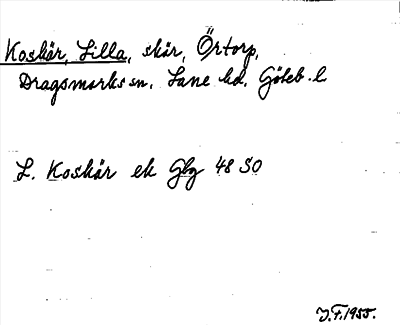 Koskär, Lilla, skär, Örtorp,
Dragsmarks sn, Lane hd, Göteb. l
L. Koskär ek Gbg 48 SO
J.F. 1955.